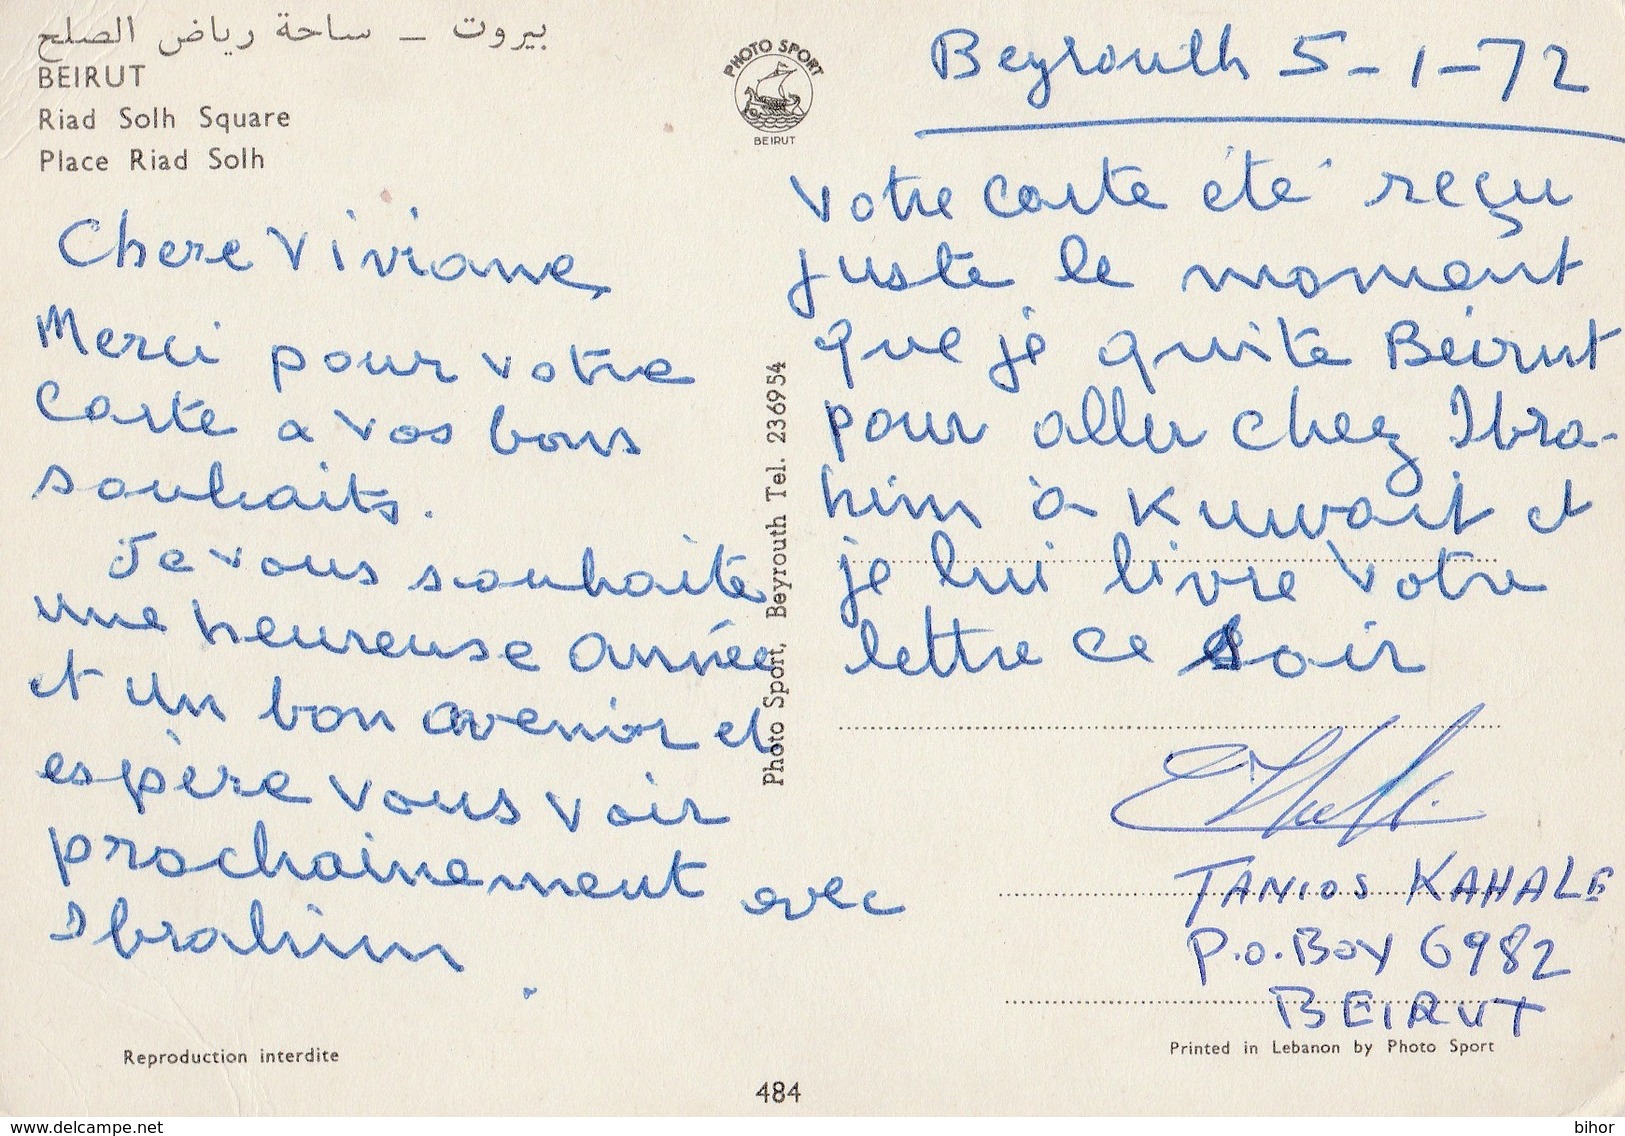 بيروت – ساحة رياض الصلح
BEIRUT
Riad Solh Square
Place Riad Solh
PHOTO SPORT
BEIRUT
Chere Viviane,
Merci pour votre
carte a vos bons
souhaits.
Je vous souhaite
une heureuse année
et un bon avenir et
espère vous voir
prochainement avec
Ibrahim.
Photo Sport, Beyrouth Tel. 236954
Beyrouth 5-1-72
Votre carte été reçu
juste le moment
que je quite Beirut
pour aller chez Ibra-
him à Kuwait et
je lui livre votre
lettre ce soir
TANIOS KAHALE
P.O. BOX 6982
BEIRUT
Reproduction interdite
Printed in Lebanon by Photo Sport
484
www.delcampe.net
bihor